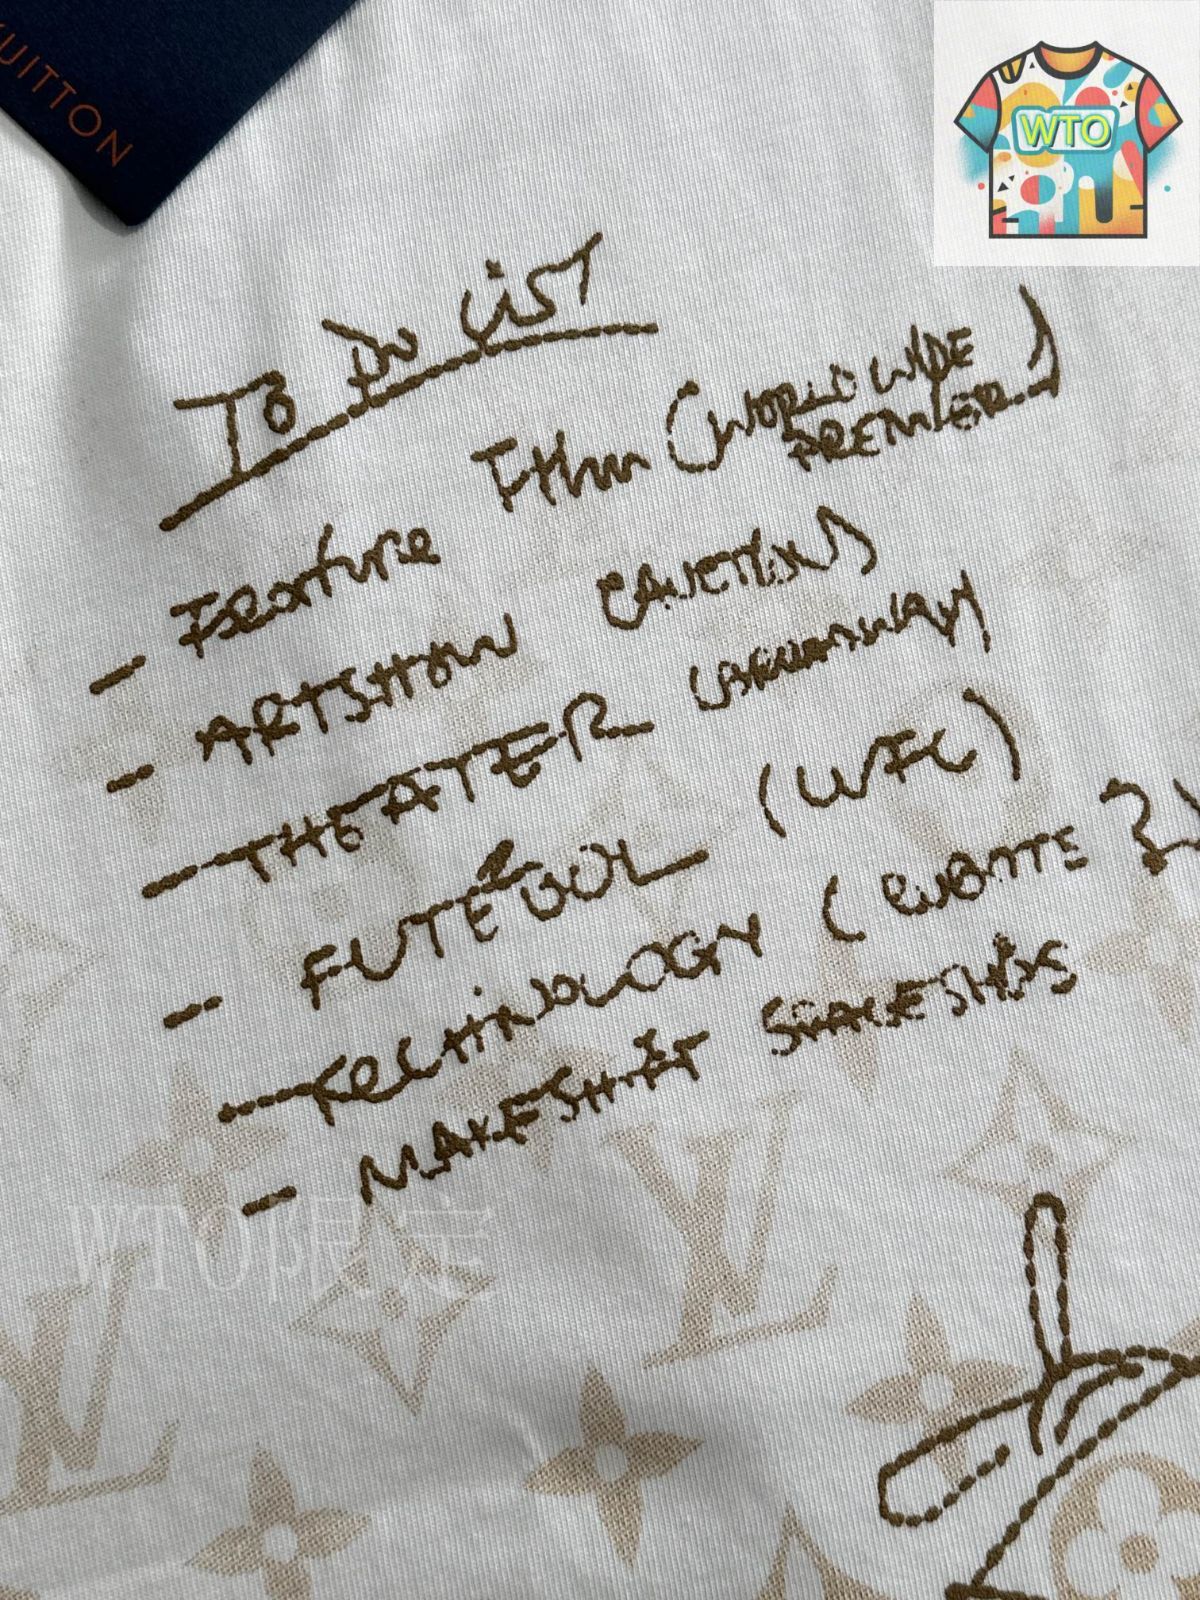 UITTON
WTO
TO DO LIST
- Feature Film (WORLD WIDE
PREMIER)
- ARTSHOW (AUCTION)
- THEATER
- FUTEBOL (WFC)
- TECHNOLOGY
- MAKESHIFT SPACESHIPS
WTO限定